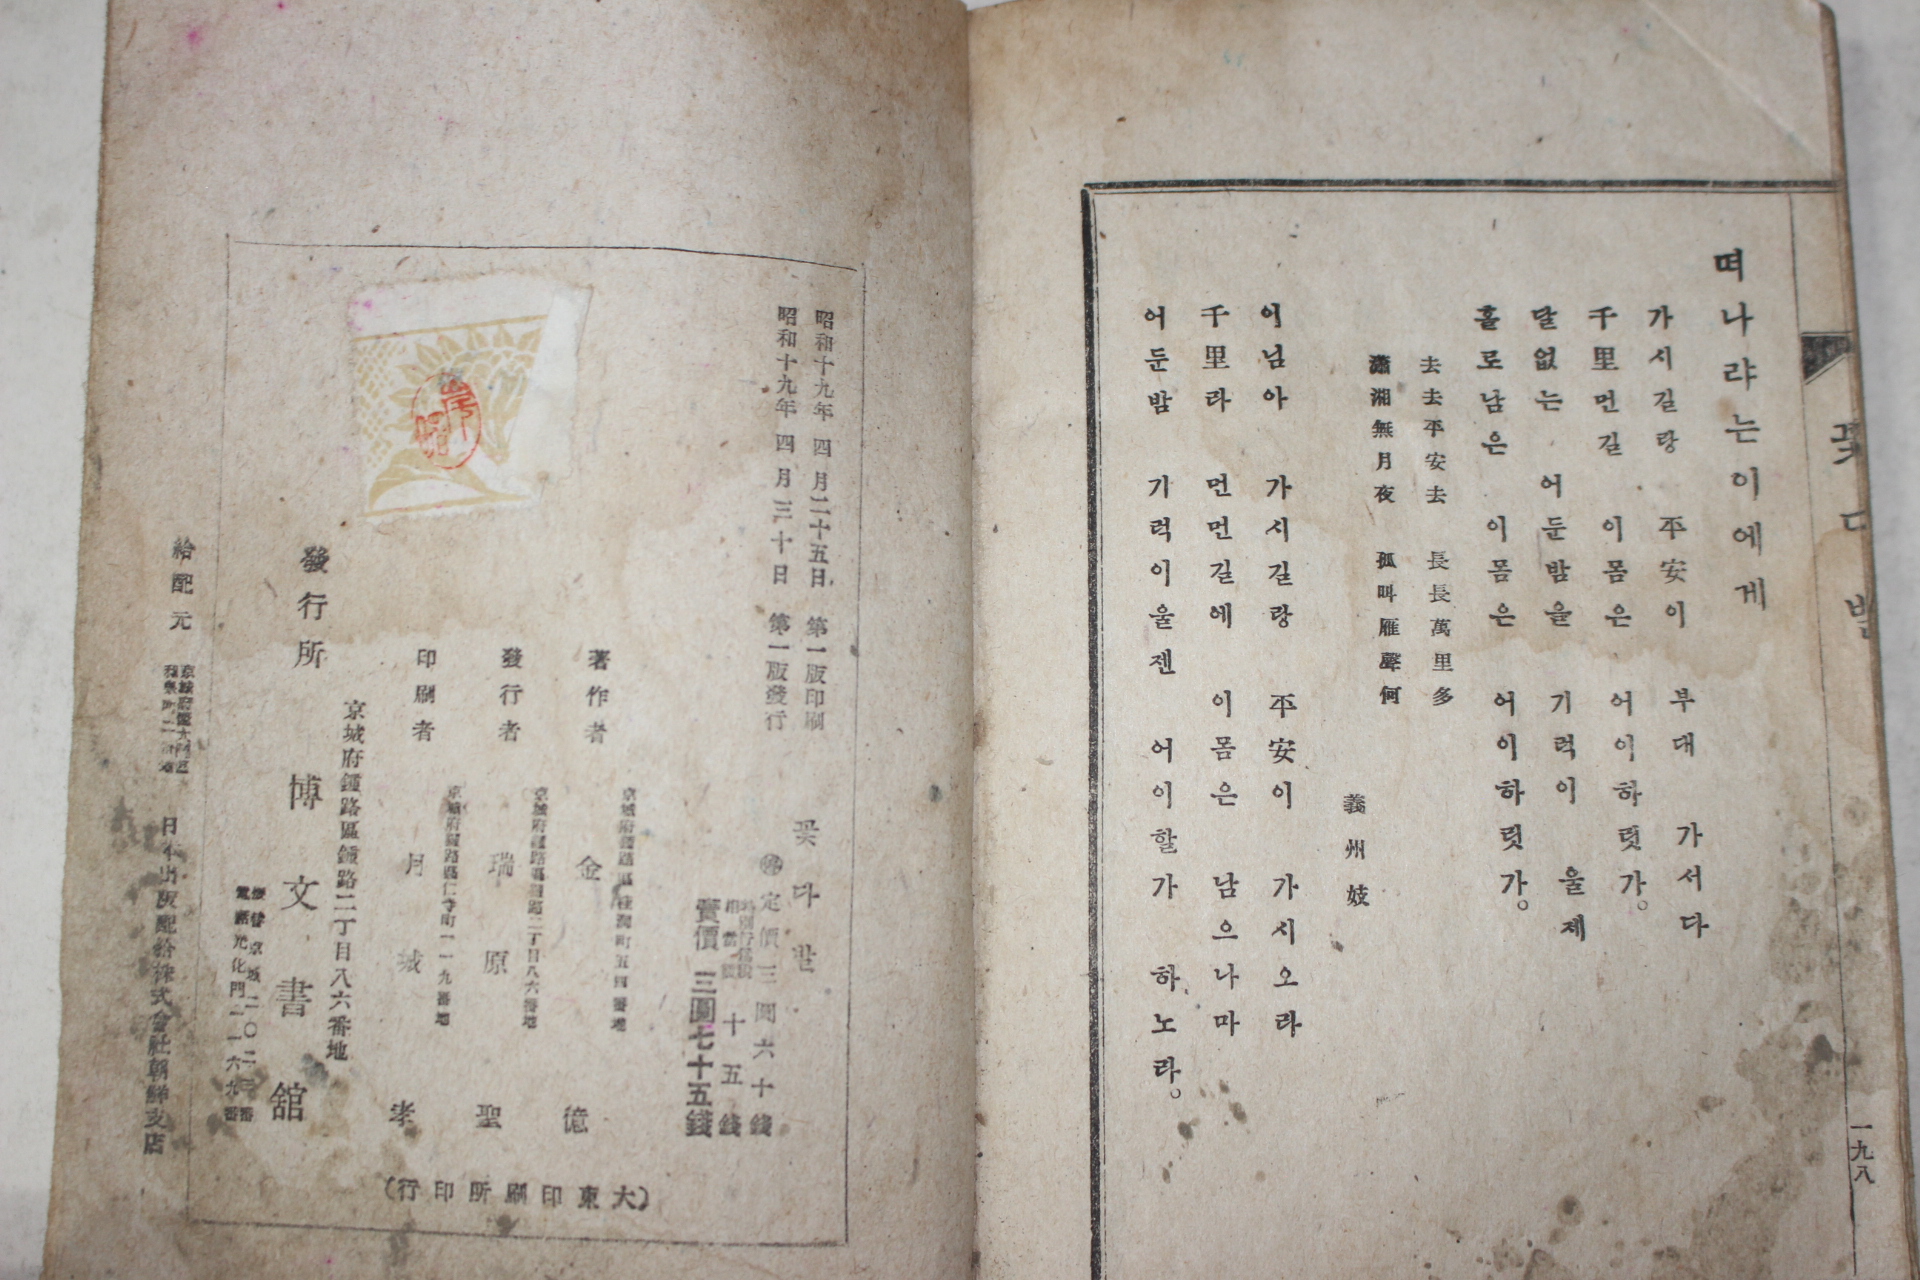 꽃다발
떠나랴는이에게
가시길랑 平安이 부대 가서다
千里먼길 이몸은 어이하렷가。
달없는 어둔밤을 기럭이 울제
홀로남은 이몸은 어이하렷가。
去去平安去 長長萬里多
瀟湘無月夜 孤叫雁聲何
義州妓
이님아 가시길랑 平安이 가시오라
千里라 먼먼길에 이몸은 남으나마
어둔밤 기럭이울젠 어이할가 하노라。
一九八
昭和十九年 四月二十五日 第一版印刷
昭和十九年 四月三十日 第一版發行
꽃다발
定價 三圓六十錢
十五錢
賣價 三圓七十五錢
著作者 金億
發行者 京城府鍾路區鍾路二丁目八六番地 瑞原聖
印刷者 京城府鍾路區仁寺町一一九番地 月城孝
京城府鍾路區鍾路二丁目八六番地
發行所 博文書舘
電話光化門二一六九番
給配元 日本出版配給株式會社朝鮮支店
(大東印刷所印行)